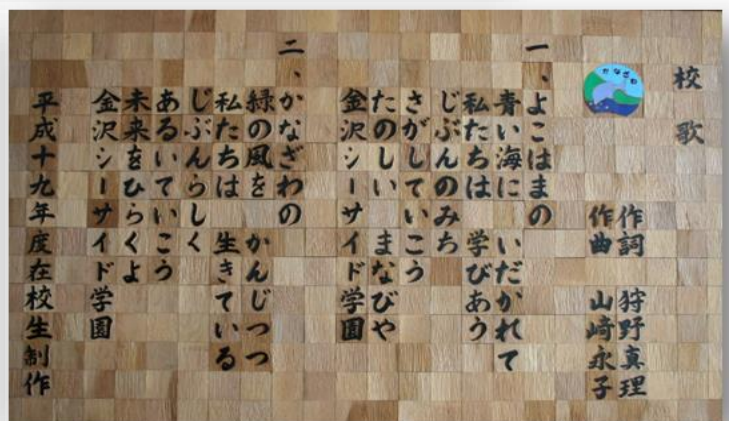 校歌
作詞 狩野真理
作曲 山崎永子
かなざわ
一、よこはまの
青い海に いだかれて
私たちは 学びあう
じぶんのみち
さがしていこう
たのしい まなびや
金沢シーサイド学園
二、かなざわの
緑の風を かんじつつ
私たちは 生きている
じぶんらしく
あるいていこう
未来をひらくよ
金沢シーサイド学園
平成十九年度在校生制作